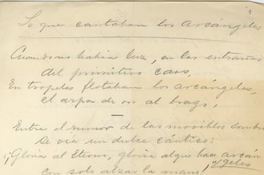 Lo que cantaban los Arcángeles
Cuando no había luz, en las entrañas
del primitivo caos,
En tropeles flotaban los arcángeles,
el arpa de oro al brazo,
Entre el rumor de las movibles sombras
Se oía un dulce cántico:
¡Gloria al Eterno, gloria al que hace
con solo alzar la mano,